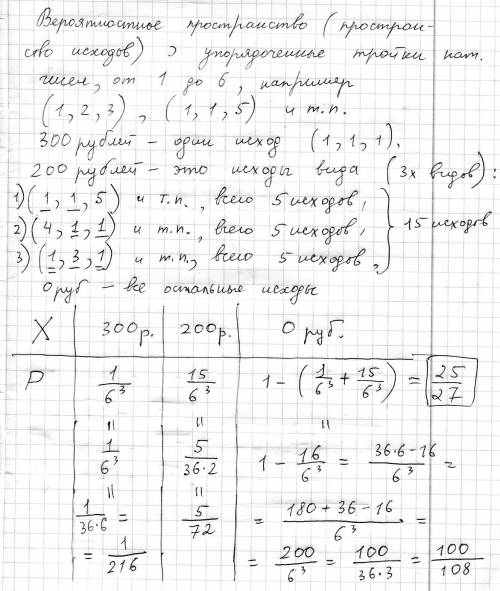 Вероятностное пространство (простран-
ство исходов) ∋ упорядоченные тройки нат.
чисел, от 1 до 6, например
(1, 2, 3), (1, 1, 5) и т.п.
300 рублей – один исход (1, 1, 1).
200 рублей – это исходы вида (3х видов):
1) (1, 1, 5) и т.п., всего 5 исходов,
2) (4, 1, 1) и т.п., всего 5 исходов, } 15 исходов
3) (1, 3, 1) и т.п., всего 5 исходов,
0 руб – все остальные исходы
X | 300р. | 200р. | 0 руб.
P | 1/6³ | 15/6³ | 1 – (1/6³ + 15/6³) = 25/27
= 1/6³ | = 5/(36·2) | = 1 – 16/6³ = (36·6–16)/6³ =
= 1/(36·6) = | = 5/72 | = (180+36–16)/6³ =
= 1/216 | = 200/6³ = 100/(36·3) = 100/108